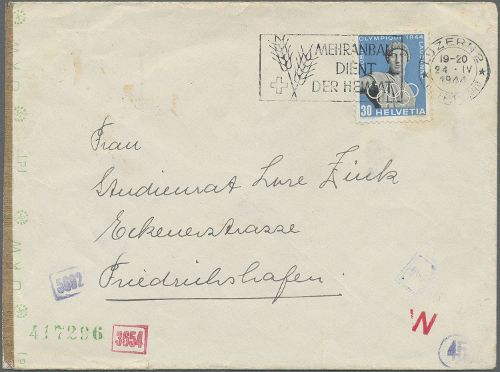 MEHRANBAU
DIENT
DER HEIMAT
OLYMPIQUE 1944
30 HELVETIA
LUZERN 2
19-20
24.IV
1944
Frau
Studienrat Lore Zink
Eckenerstrasse
Friedrichshafen.
5082
417296
3654
N
45
OKW
OKW